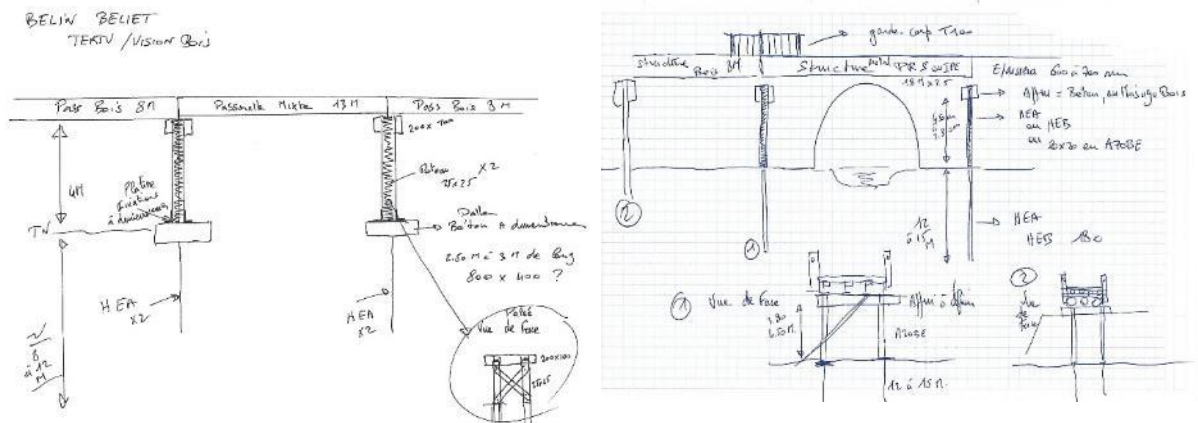 BELIN BELIET
TERTU / VISION Bois
Pass Bois 8M
Passerelle Mixte 13M
Pass Bois 8M
200x100
4M
Platine
fixations
à dimensionner
Poteau X2
25x25
TN
Dalle
Béton à dimensionner
2.50 M à 3 M de long
800 x 400 ?
HEA
X2
HEA
X2
8
à 12
M
Palée
Vue de Face
200x100
25x25
garde-corp T100
structure
Bois 8M
Structure
18M x 2.5
600 à 700 mm
Appui = Béton, ou Bois
HEA
ou HEB
ou 20x20 en AZOBE
12
à 15
M
HEA
HEB 180
2
1
1 Vue de Face
Appui à définir
AZOBE
12 à 15 M
2
Vue
de
Face